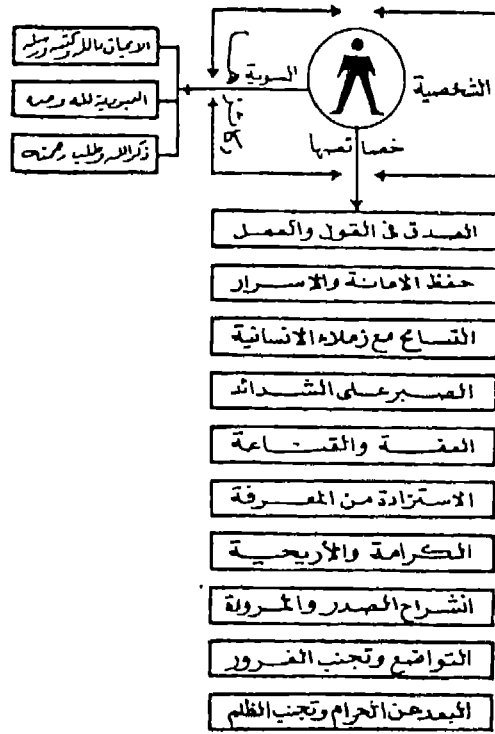 الشخصية
السوية
خصائصها
الايمان بالله وكتبه ورسله
العبودية لله وحده
ذكر الله وطلب رحمته
الصدق في القول والعمل
حفظ الامانة والاسرار
التسامح مع زملاء الانسانية
الصبر على الشدائد
العفة والقناعة
الاستزادة من المعرفة
الكرامة والأريحية
انشراح الصدر والمرونة
التواضع وتجنب الغرور
البعد عن الحرام وتجنب الظلم